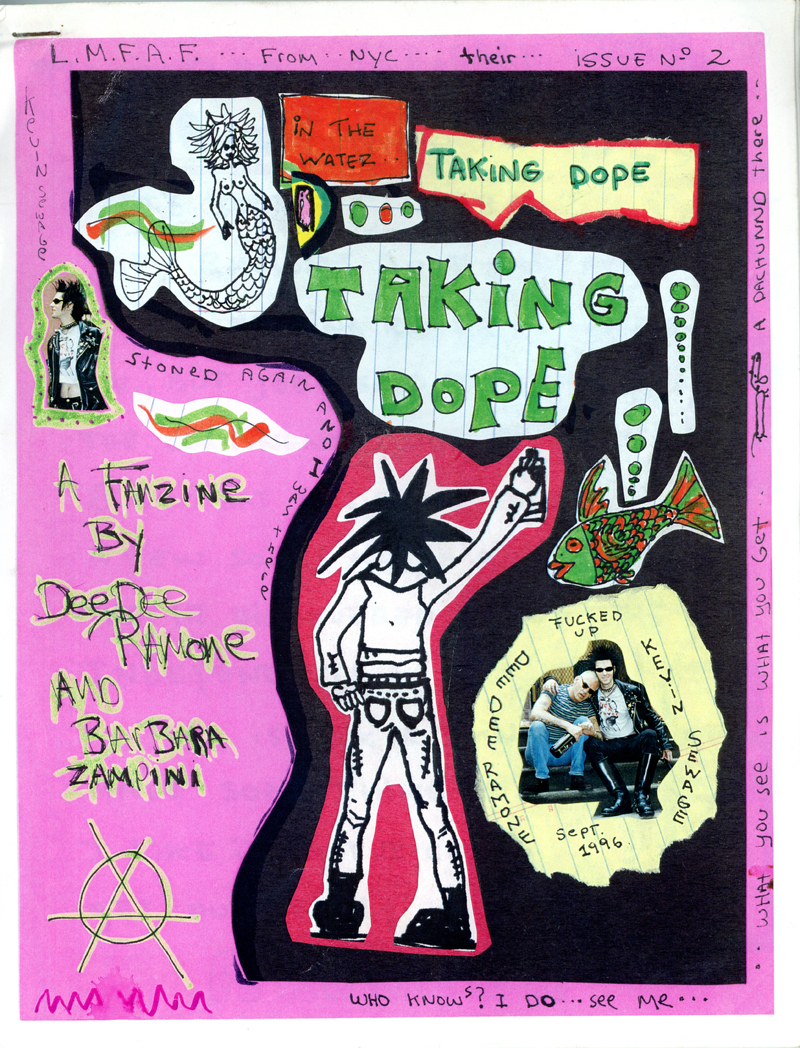 L.M.F.A.F. ... From .. NYC .... their ... iSSUE Nº 2
KEVIN SEWAGE
iN THE
WATEZ..
TAKiNG DOPE
TAKiNG
DOPE
STONED AGAIN AND I
A FANZiNE
By
DeeDee
RAMONE
AND
BARBARA
ZAMPiNi
FUCKED
UP
DEE DEE RAMONE
KEViN SEWAGE
SePT.
1996.
... WHAT YOU See iS WHAT YOU GeT..
A DACHUNND THere ...
WHO KNOWS? I DO ... See Me ...